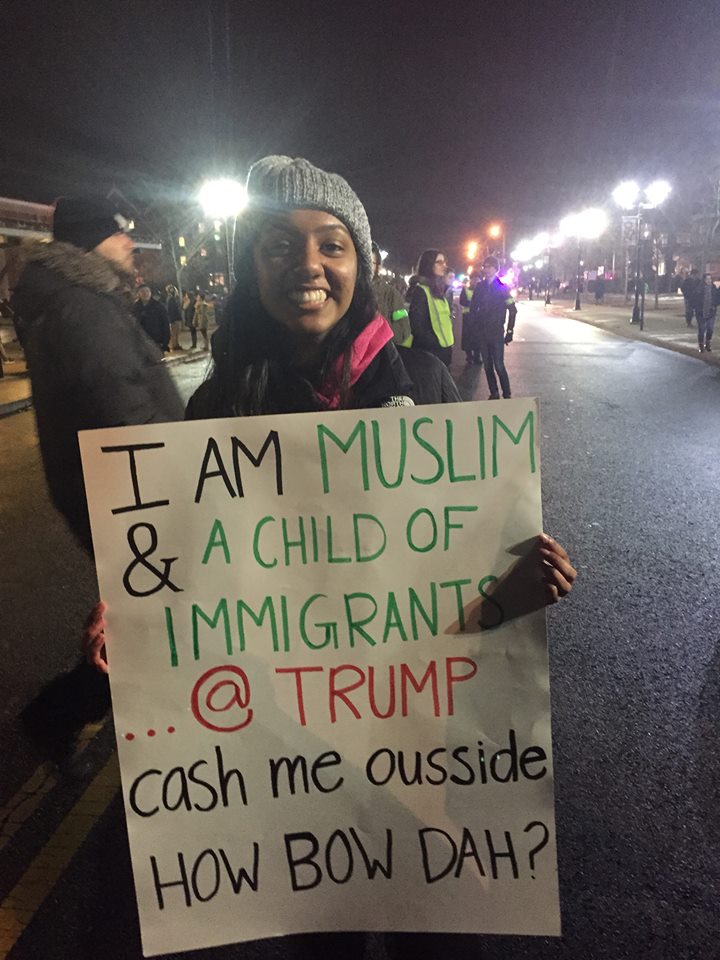 I AM MUSLIM
& A CHILD OF
IMMIGRANTS
...@ TRUMP
cash me ousside
HOW BOW DAH?
THE